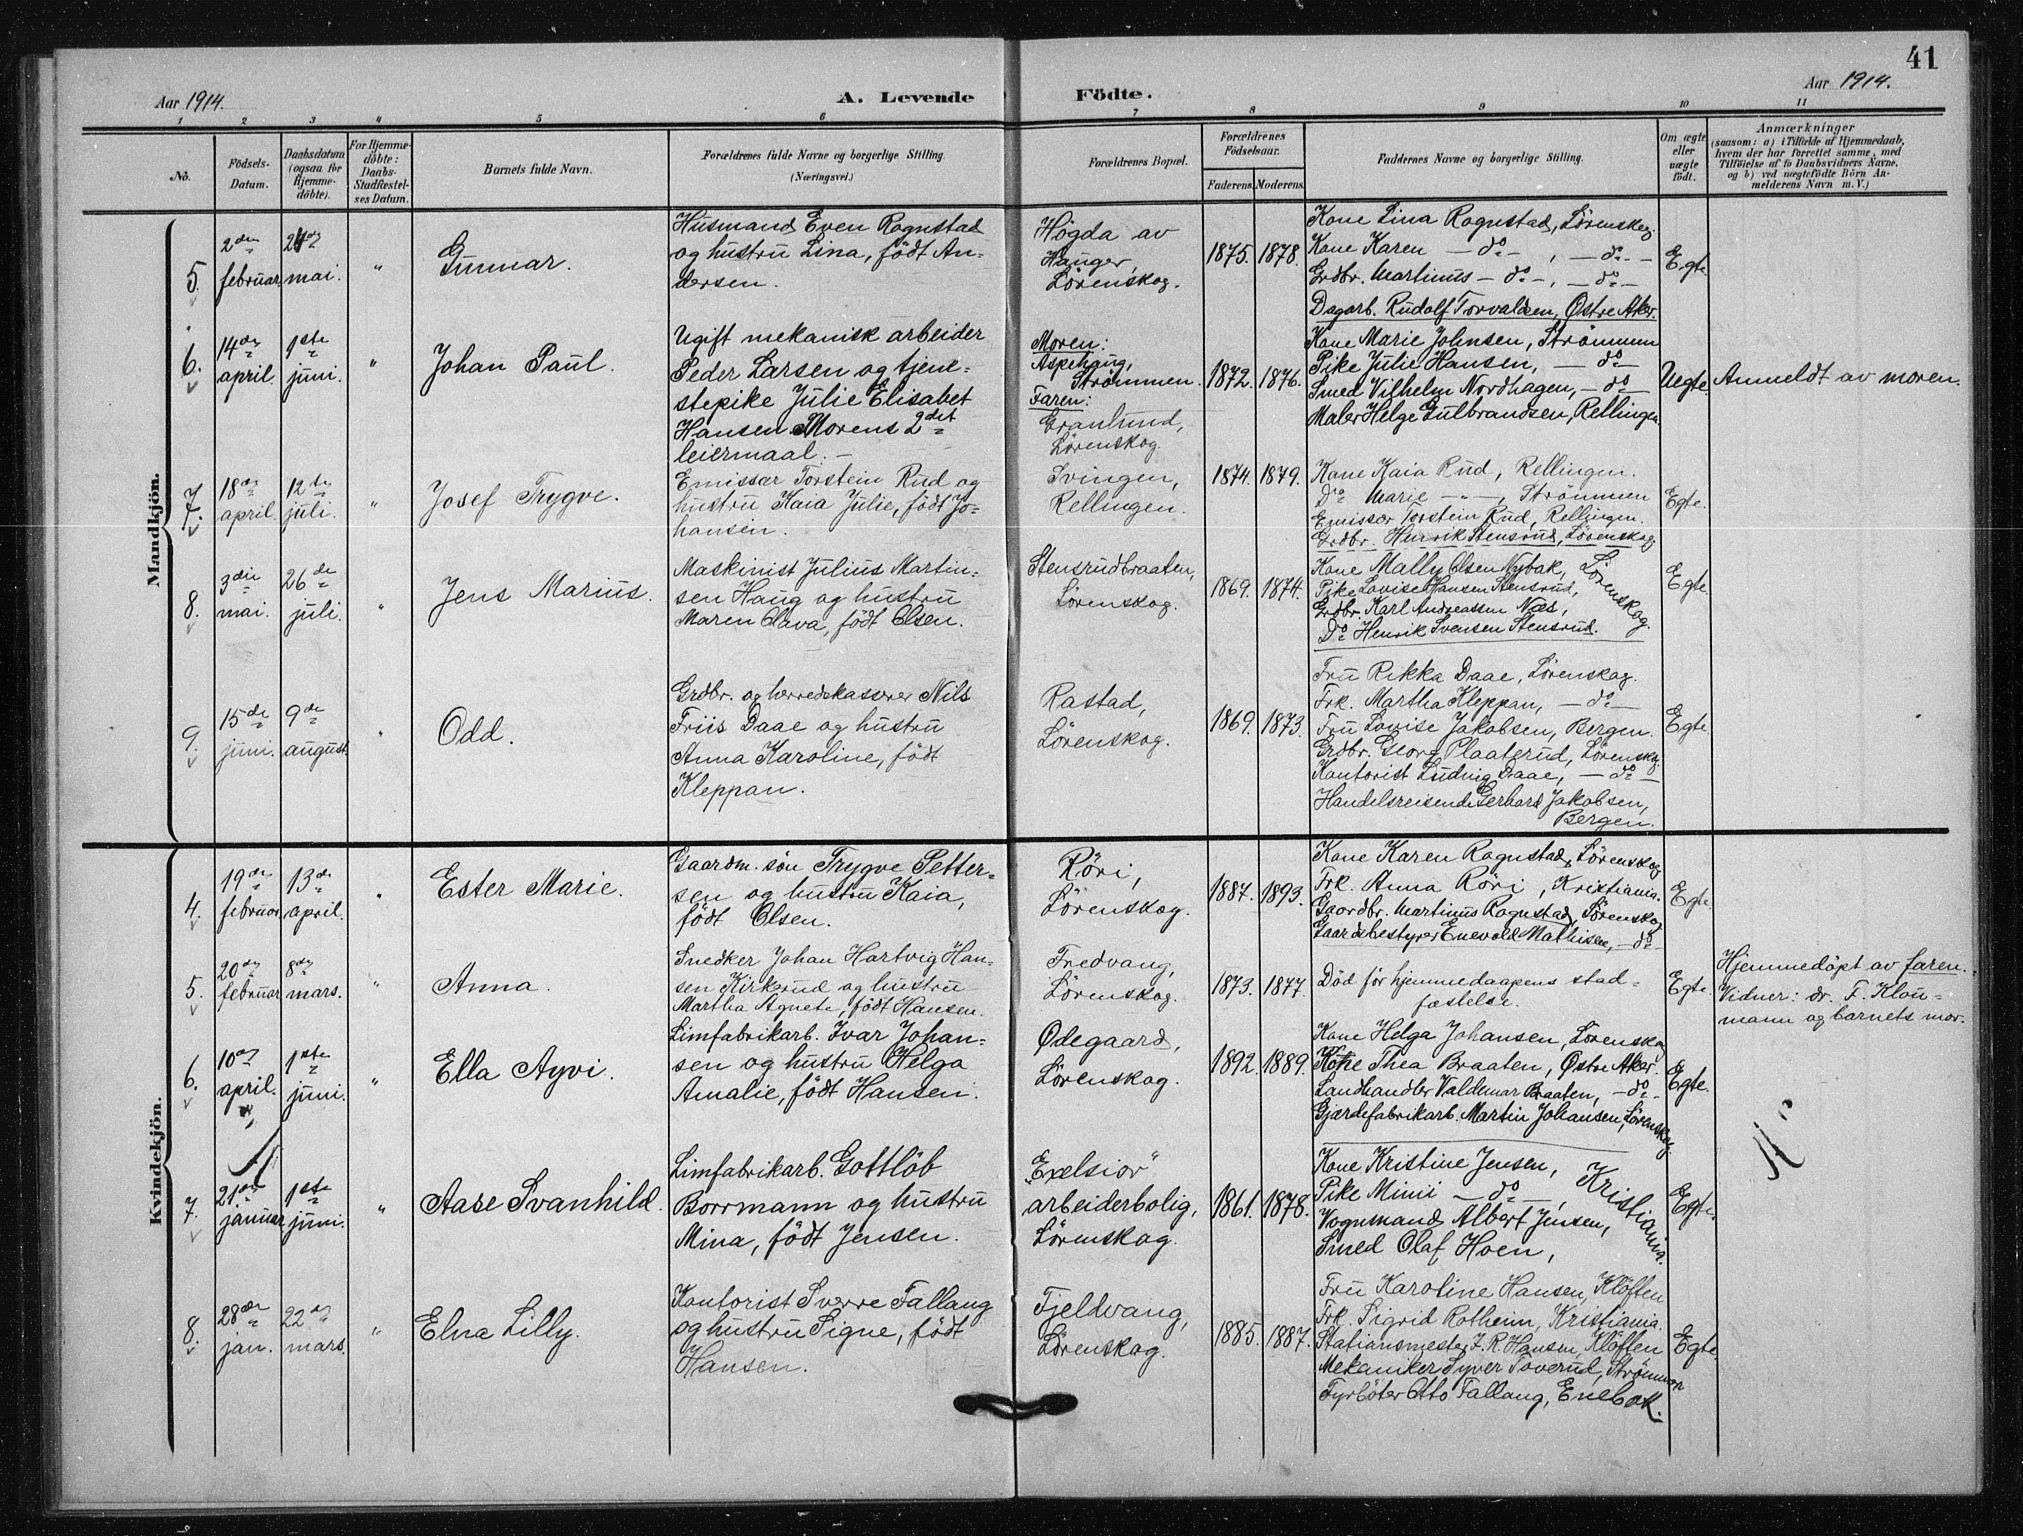 41
Aar 1914.
A. Levende Födte.
Aar 1914.
1 2 3 4 5 6 7 8 9 10 11
No.
Födsels-Datum.
Daabsdatum (ogsaa for Hjemmedöbte).
For Hjemmedöbte: Daabs-Stadfæstelses Datum.
Barnets fulde Navn.
Forældrenes fulde Navne og borgerlige Stilling.
(Næringsvei.)
Forældrenes Bopæl.
Forældrenes Födselsaar.
Faderens. Moderens.
Faddernes Navne og borgerlige Stilling.
Om ægte eller uægte födt.
Anmærkninger
(saasom: a) i Tilfælde af Hjemmedaab, hvem der har forrettet samme, med Tilföielse af to Daabsvidners Navne, og b) ved uægtefödte Börn Anmelderens Navn m. V.)
Mandkjön.
5.
2den februar
24de mai.
"
Gunnar.
Husmand Even Rognstad
og hustru Lina, født An-
dersen.
Högda av
Hauger,
Lørenskog.
1875. 1878.
Kone Lina Rognstad, Lørenskog.
Kone Karen — do —, — do —
Grdbr. Martinus — do —, — do —
Dagarb. Rudolf Torvaldsen, Østre Aker.
Egte
6.
14de april
1ste juni.
"
Johan Paul.
Ugift mekanisk arbeider
Peder Larsen og tjene-
stepike Julie Elisabet
Hansen. Morens 2det
leiermaal. —
Moren:
Aspehaug,
Strømmen.
Faren:
Granlund,
Lørenskog.
1872. 1876.
Kone Marie Johnsen, Strømmen
Pike Julie Hansen, — do —
Smed Vilhelm Nordhagen, — do —
Maler Helge Gulbrandsen, Rellingen.
Uegte.
Anmeldt av moren.
7.
18de april.
12te juli.
"
Josef Trygve.
Emissær Torstein Rud og
hustru Kaia Julie, født Jo-
hansen.
Svingen,
Rellingen.
1874. 1879.
Kone Kaia Rud, Rellingen.
Do Marie — " —, Strømmen
Emissær Torstein Rud, Rellingen.
Grdbr. Henrik Stensrud, Lørenskog.
Egte.
8.
3die mai.
26de juli.
"
Jens Marius.
Maskinist Julius Martin-
sen Haug og hustru
Maren Olava, født Olsen.
Stensrudbraaten,
Lørenskog.
1869. 1874.
Kone Mally Olsen Nybak,
Pike Lovise Hansen Stensrud,
Grdbr. Karl Andreassen Næs,
Do Henrik Svensen Stensrud.
Lørenskog.
Egte.
9.
15de juni.
9de august.
"
Odd.
Grdbr. og herredskasserer Nils
Friis Daae og hustru
Anna Karoline, født
Kleppan.
Rastad,
Lørenskog.
1869. 1873.
Fru Rikka Daae, Lørenskog.
Frk. Martha Kleppan, — do —
Fru Lovise Jakobsen, Bergen.
Grdbr. Georg Plaaterud, Lørenskog.
Kontorist Ludvig Daae, — do —
Handelsreisende Gerhard Jakobsen,
Bergen.
Egte.
Kvindekjön.
4.
19de februar
13de april.
"
Ester Marie.
Gaardm. søn Trygve Petter-
sen og hustru Kaia,
født Olsen.
Röri,
Lørenskog.
1887. 1893.
Kone Karen Rognstad, Lørenskog
Frk. Anna Röri, Kristiania.
Gaardbr. Martinus Rognstad, Lørenskog
Gaardsbestyrer Enevold Mathisen, — do —
Egte.
5.
20de februar
8de mars.
"
Anna.
Snedker Johan Hartvig Han-
sen Kirkerud og hustru
Martha Agnete, født Hansen.
Fredvang,
Lørenskog.
1873. 1877.
Død før hjemmedaapens stad-
fæstelse.
Egte.
Hjemmedöpt av faren.
Vidner: dr. F. Klou-
mann og barnets mor.
6.
10de april.
1ste juni.
"
Ella Ayvi.
Limfabrikarb. Ivar Johan-
sen og hustru Helga
Amalie, født Hansen.
Ødegaard,
Lørenskog.
1892. 1889.
Kone Helga Johansen, Lørenskog
Kone Thea Braaten, Østre Aker.
Landhandler Valdemar Braaten, — do —
Gjærdefabrikarb. Martin Johansen, Lørenskog.
Egte.
7.
21de januar
1ste juni.
"
Aase Svanhild.
Limfabrikarb. Gottlöb
Borrmann og hustru
Mina, født Jensen.
„Exelsior"
arbeiderbolig,
Lørenskog.
1861. 1878.
Kone Kristine Jensen,
Pike Mimi — do —,
Vognmand Albert Jensen,
Smed Olaf Hoen,
Kristiania.
Egte.
8.
28de jan.
22de mars.
"
Elna Lilly.
Kontorist Sverre Fallang
og hustru Signe, født
Hansen.
Fjeldvang,
Lørenskog.
1885. 1887.
Fru Karoline Hansen, Klöften
Frk. Sigrid Rotheim, Kristiania.
Stationsmester J. R. Hansen, Klöften
Mekaniker Syver Toverud, Strømmen
Fyrböter Otto Fallang, Enebak.
Egte.